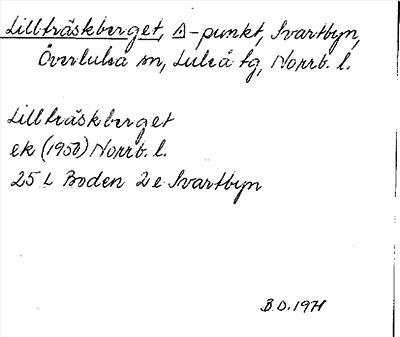 Lillträskberget, A-punkt, Svartbyn,
Överluleå sn, Luleå tg, Norrb. l.
Lillträskberget
ek (1950) Norrb. l.
25 L Boden 2 e Svartbyn
B.D. 1971